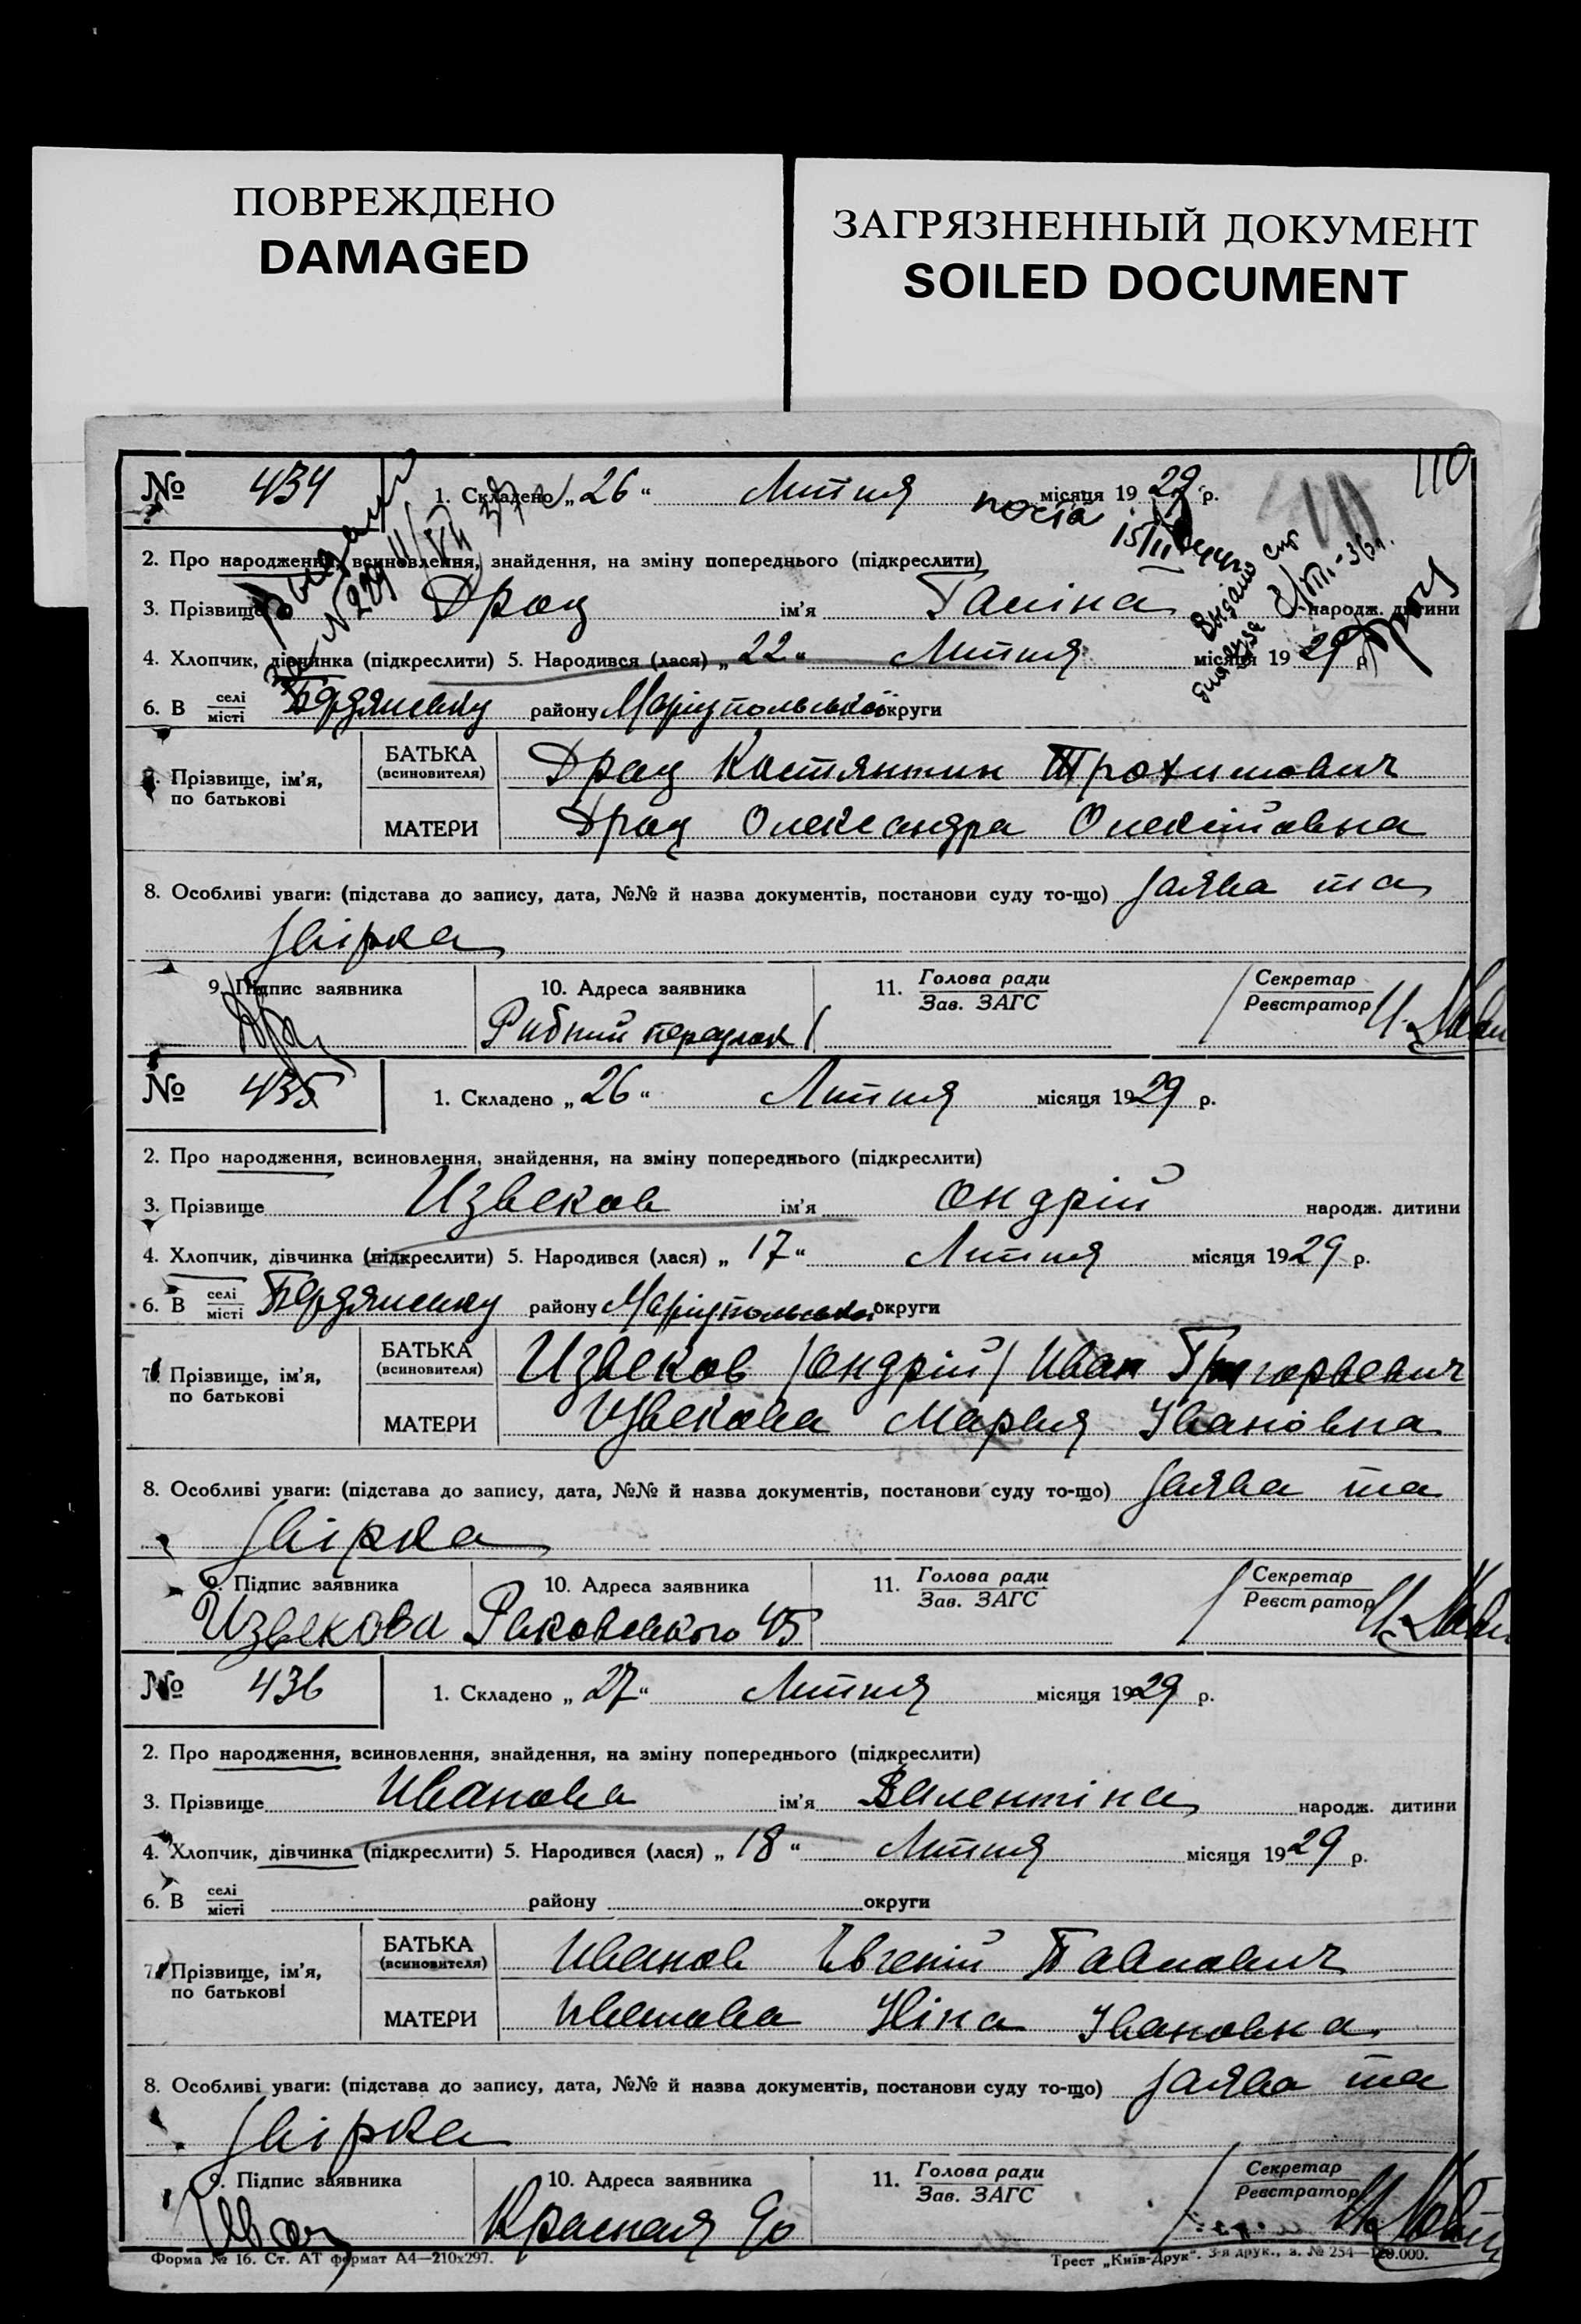 ПОВРЕЖДЕНО
DAMAGED
ЗАГРЯЗНЕННЫЙ ДОКУМЕНТ
SOILED DOCUMENT
110
№ 434 1. Складено „ 26 “ Липня місяця 19 29 р.
2. Про народження, всиновлення, знайдення, на зміну попереднього (підкреслити)
3. Прізвище Драц ім'я Галіна народж. дитини
4. Хлопчик, дівчинка (підкреслити) 5. Народився (лася) „ 22 “ Липня місяця 19 29 р.
6. В селі місті Бердянську району Маріупольської округи
7. Прізвище, ім'я, по батькові БАТЬКА (всиновителя) Драц Костянтин Трохимович
МАТЕРИ Драц Олександра Олексіївна
8. Особливі уваги: (підстава до запису, дата, №№ й назва документів, постанови суду то-що) заява та
звірка
9. Підпис заявника 10. Адреса заявника 11. Голова ради Зав. ЗАГС Секретар Реєстратор
Драц Рибний переулок
№ 435 1. Складено „ 26 “ Липня місяця 19 29 р.
2. Про народження, всиновлення, знайдення, на зміну попереднього (підкреслити)
3. Прізвище Извеков ім'я Ондрій народж. дитини
4. Хлопчик, дівчинка (підкреслити) 5. Народився (лася) „ 17 “ Липня місяця 19 29 р.
6. В селі місті Бердянську району Маріупольської округи
7. Прізвище, ім'я, по батькові БАТЬКА (всиновителя) Извеков /Ондрій/ Иван Григорьевич
МАТЕРИ Извекова Марья Івановна
8. Особливі уваги: (підстава до запису, дата, №№ й назва документів, постанови суду то-що) заява та
звірка
9. Підпис заявника 10. Адреса заявника 11. Голова ради Зав. ЗАГС Секретар Реєстратор
Извекова Раковського 45
№ 436 1. Складено „ 27 “ Липня місяця 19 29 р.
2. Про народження, всиновлення, знайдення, на зміну попереднього (підкреслити)
3. Прізвище Иванова ім'я Валентіна народж. дитини
4. Хлопчик, дівчинка (підкреслити) 5. Народився (лася) „ 18 “ Липня місяця 19 29 р.
6. В селі місті району округи
7. Прізвище, ім'я, по батькові БАТЬКА (всиновителя) Иванов Евгеній Павлович
МАТЕРИ Иванова Ніна Івановна
8. Особливі уваги: (підстава до запису, дата, №№ й назва документів, постанови суду то-що) заява та
звірка
9. Підпис заявника 10. Адреса заявника 11. Голова ради Зав. ЗАГС Секретар Реєстратор
Красная 90
Форма № 16. Ст. АТ формат А4—210х297. Трест „Київ-Друк“. 3-я друк., з. № 254—120.000.